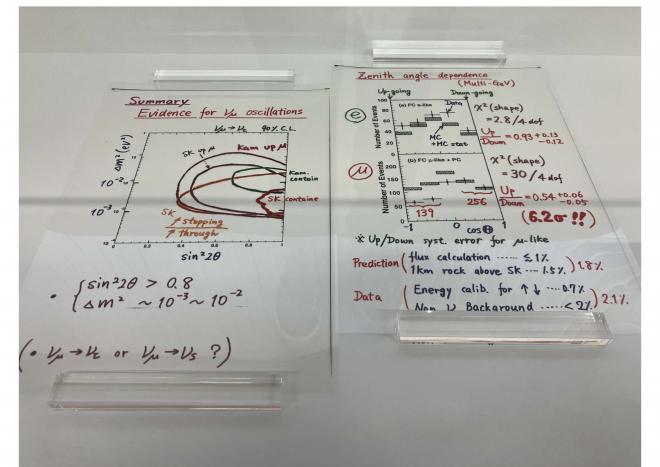 Summary
Evidence for νμ oscillations
νμ→ντ 90% C.L.
Δm² (eV²)
1
SK up μ
Kam up μ
Kam. contain
10⁻²
SK containe
10⁻³
SK
stopping
through
0
1
sin²2θ
• { sin²2θ > 0.8
Δm² ~ 10⁻³ ~ 10⁻²
(• νμ→ντ or νμ→νs ?)
Zenith angle dependence
(Multi-GeV)
Up-going
Down-going
e
Number of Events
(a) FC e-like
Data
MC
+MC stat
100
80
60
40
χ²(shape)
= 2.8 / 4 dof
Up/Down = 0.93 +0.13 -0.12
μ
Number of Events
(b) FC μ-like + PC
200
150
100
50
139
256
-1
0
1
cosΘ
χ²(shape)
= 30 / 4 dof
Up/Down = 0.54 +0.06 -0.05
(6.2σ !!)
※ Up/Down syst. error for μ-like
Prediction ( flux calculation ...... ≲ 1%
1km rock above SK .... 1.5% ) 1.8%
Data ( Energy calib. for ↑↓ .... 0.7%
Non ν Background ...... < 2% ) 2.1%